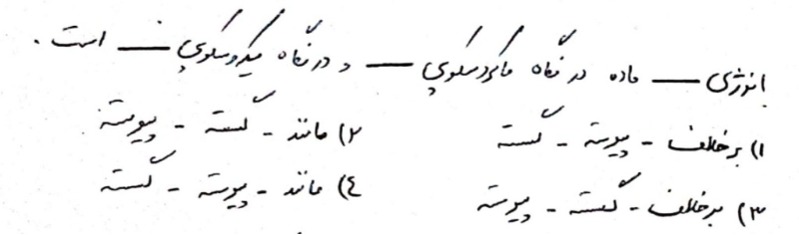 انرژی ــــ ماده در نگاه ماکروسکوپی ــــ و در نگاه میکروسکوپی ــــ است.
۱) برخلاف - پیوسته - گسسته ۲) مانند - گسسته - پیوسته
۳) برخلاف - گسسته - پیوسته ۴) مانند - پیوسته - گسسته